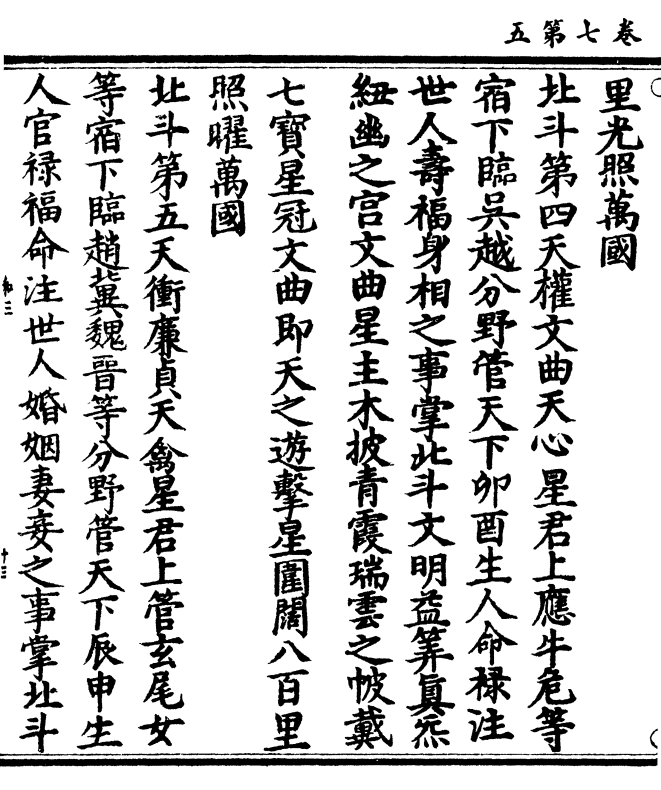 五第七卷
里光照萬國
北斗第四天權文曲天心星君上應牛危等
宿下臨吳越分野管天下卯酉生人命禄注
世人壽福身相之事掌北斗文明益筭真炁
紐幽之宫文曲星主木披青霞瑞雲之帔戴
七寶星冠文曲即天之遊擊星圍闊八百里
照曜萬國
北斗第五天衝廉貞天禽星君上管玄尾女
等宿下臨趙冀魏晉等分野管天下辰申生
人官禄福命注世人婚姻妻妾之事掌北斗
十三